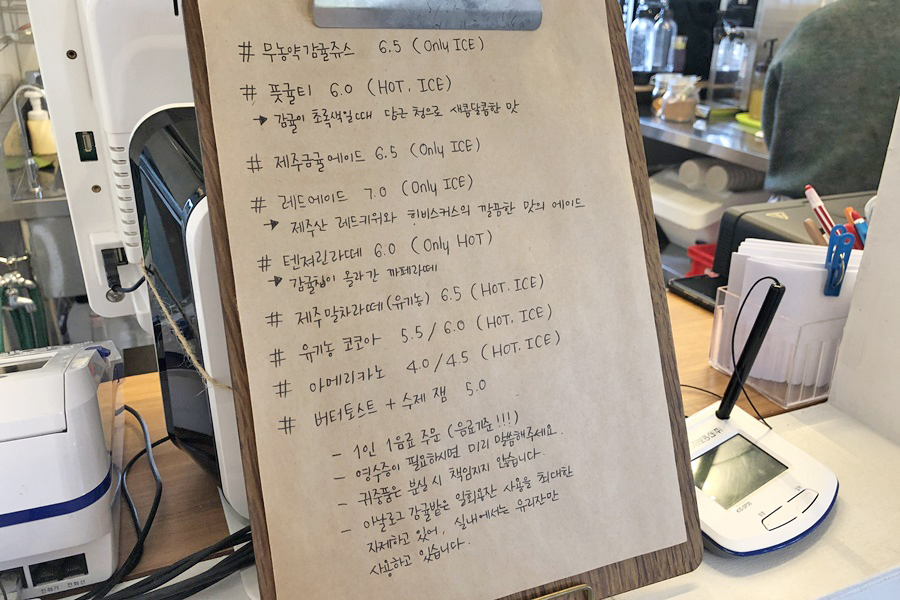 # 무농약감귤쥬스 6.5 (Only ICE)
# 풋귤티 6.0 (HOT. ICE)
→ 감귤이 초록색일때 담근 청으로 새콤달콤한 맛
# 제주금귤에이드 6.5 (Only ICE)
# 레드에이드 7.0 (Only ICE)
→ 제주산 레드키위와 히비스커스의 깔끔한 맛의 에이드
# 텐저린라떼 6.0 (Only HOT)
→ 감귤칩이 올라간 까페라떼
# 제주말차라떼(유기농) 6.5 (HOT. ICE)
# 유기농 코코아 5.5/6.0 (HOT. ICE)
# 아메리카노 4.0/4.5 (HOT. ICE)
# 버터토스트 + 수제 잼 5.0
- 1인 1음료 주문 (음료기준!!!)
- 영수증이 필요하시면 미리 말씀해주세요.
- 귀중품은 분실 시 책임지지 않습니다.
- 아날로그 감귤밭은 일회용잔 사용을 최대한
자제하고 있어, 실내에서는 유리잔만
사용하고 있습니다.